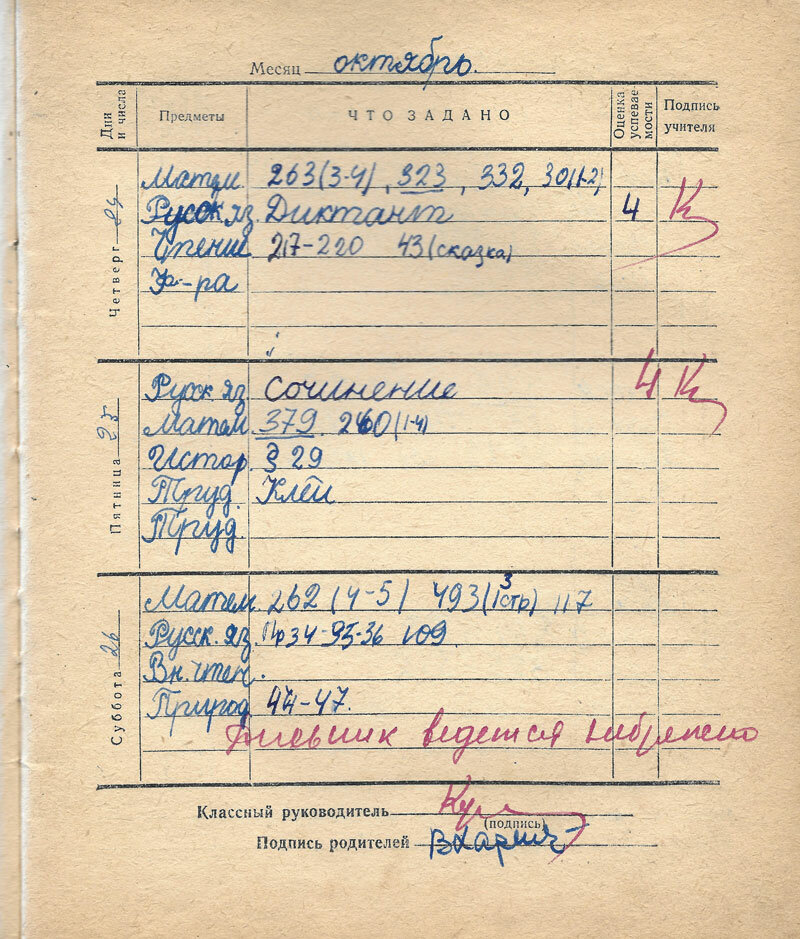 Месяц октябрь.
Дни и числа Предметы ЧТО ЗАДАНО Оценка успевае-мости Подпись учителя
Четверг 24
Матем. 263(3-4), 323, 332, 30(1-2)
Русск яз. Диктант 4 К
Чтение 217-220 43(сказка)
Ф-ра
Пятница 25
Русск яз. Сочинение 4 К
Матем. 379. 260(1-4)
Истор. § 29
Труд. Клей
Труд.
Суббота 26
Матем. 262 (4-5) 493(1стр) 3 117
Русск. яз. Пр 34-35-36 109
Вн. чтен.
Природ. 44-47.
Дневник ведется небрежно
Классный руководитель
(подпись)
Подпись родителей